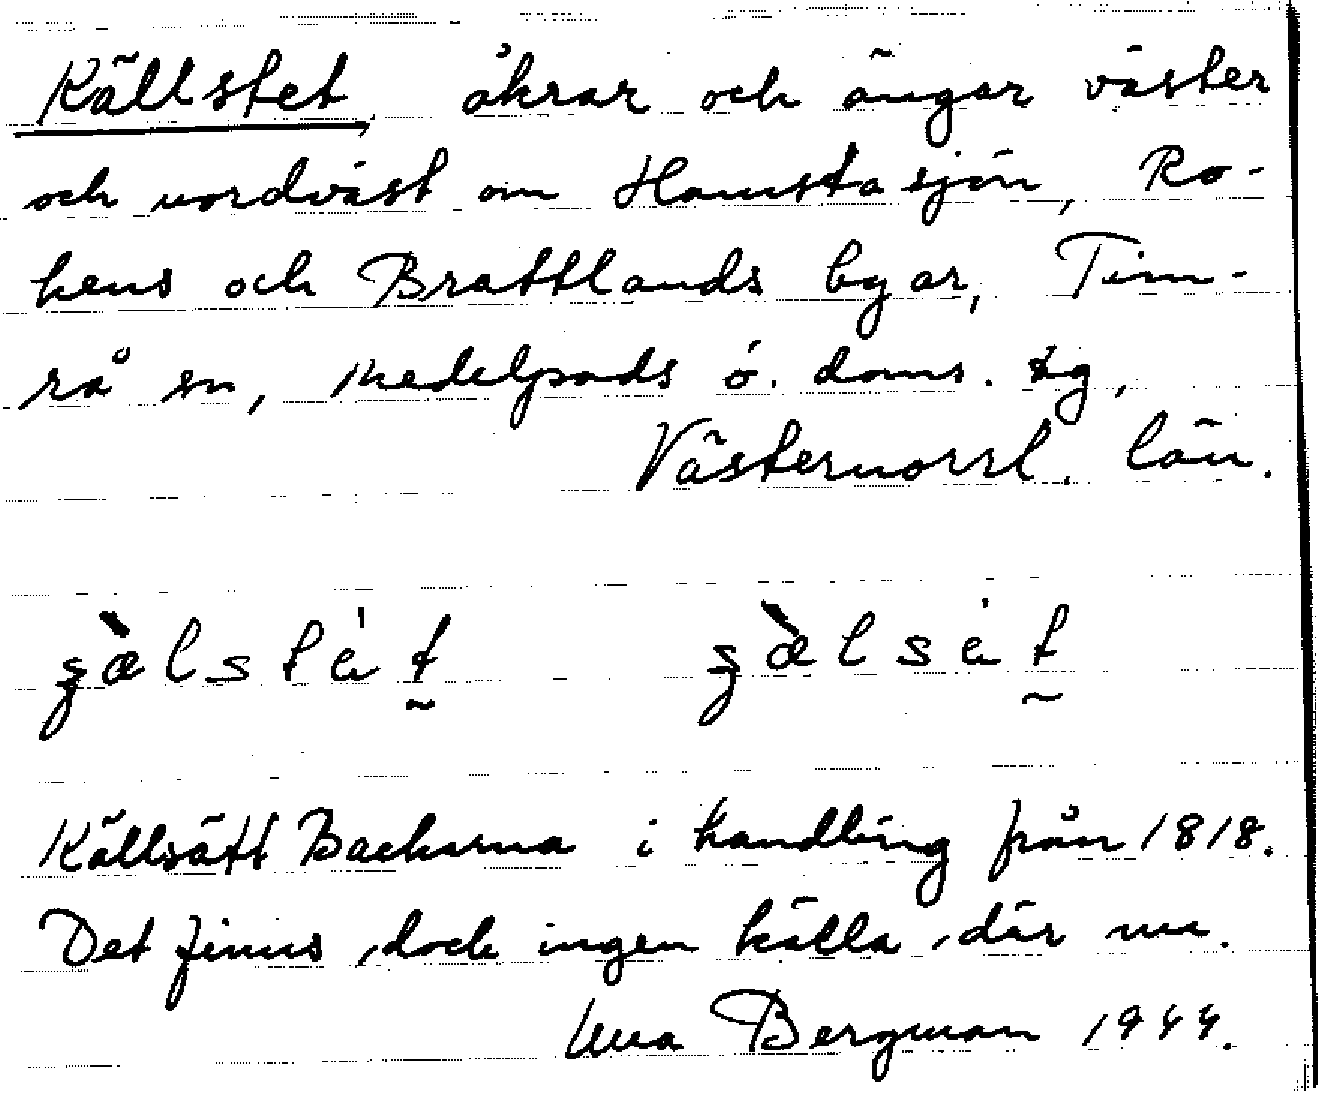 Källstet, åkrar och ängar väster
och nordväst om Hamstasjön, Ro-
kens och Brattlands byar, Tim-
rå sn, Medelpads ö. doms. tg,
Västernorrl. län.
Källsätt Backarna i handling från 1818.
Det finns dock ingen källa där nu.
Una Bergman 1944.